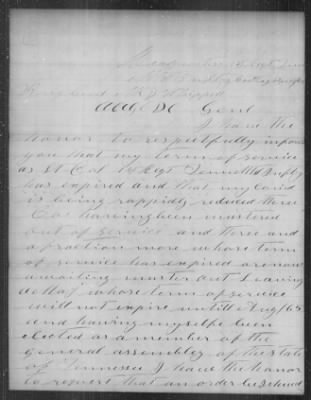 Head quarters
A A G D C Genl
I have the
honor to respectfully inform
you that my term of service
as Lt Col 1st Regt Tennessee Infty
has expired and that my Comd
is being rappidly reduced three
Cos having been mustered
out of service and three and
a fraction more whose term
of service has expired are now
awaiting muster out Leaving
whose term of service
will not expire untill Aug 1865
and having myself been
elected as a member of the
general assembly of the State
of Tennessee I have the honor
to request that an order be issued